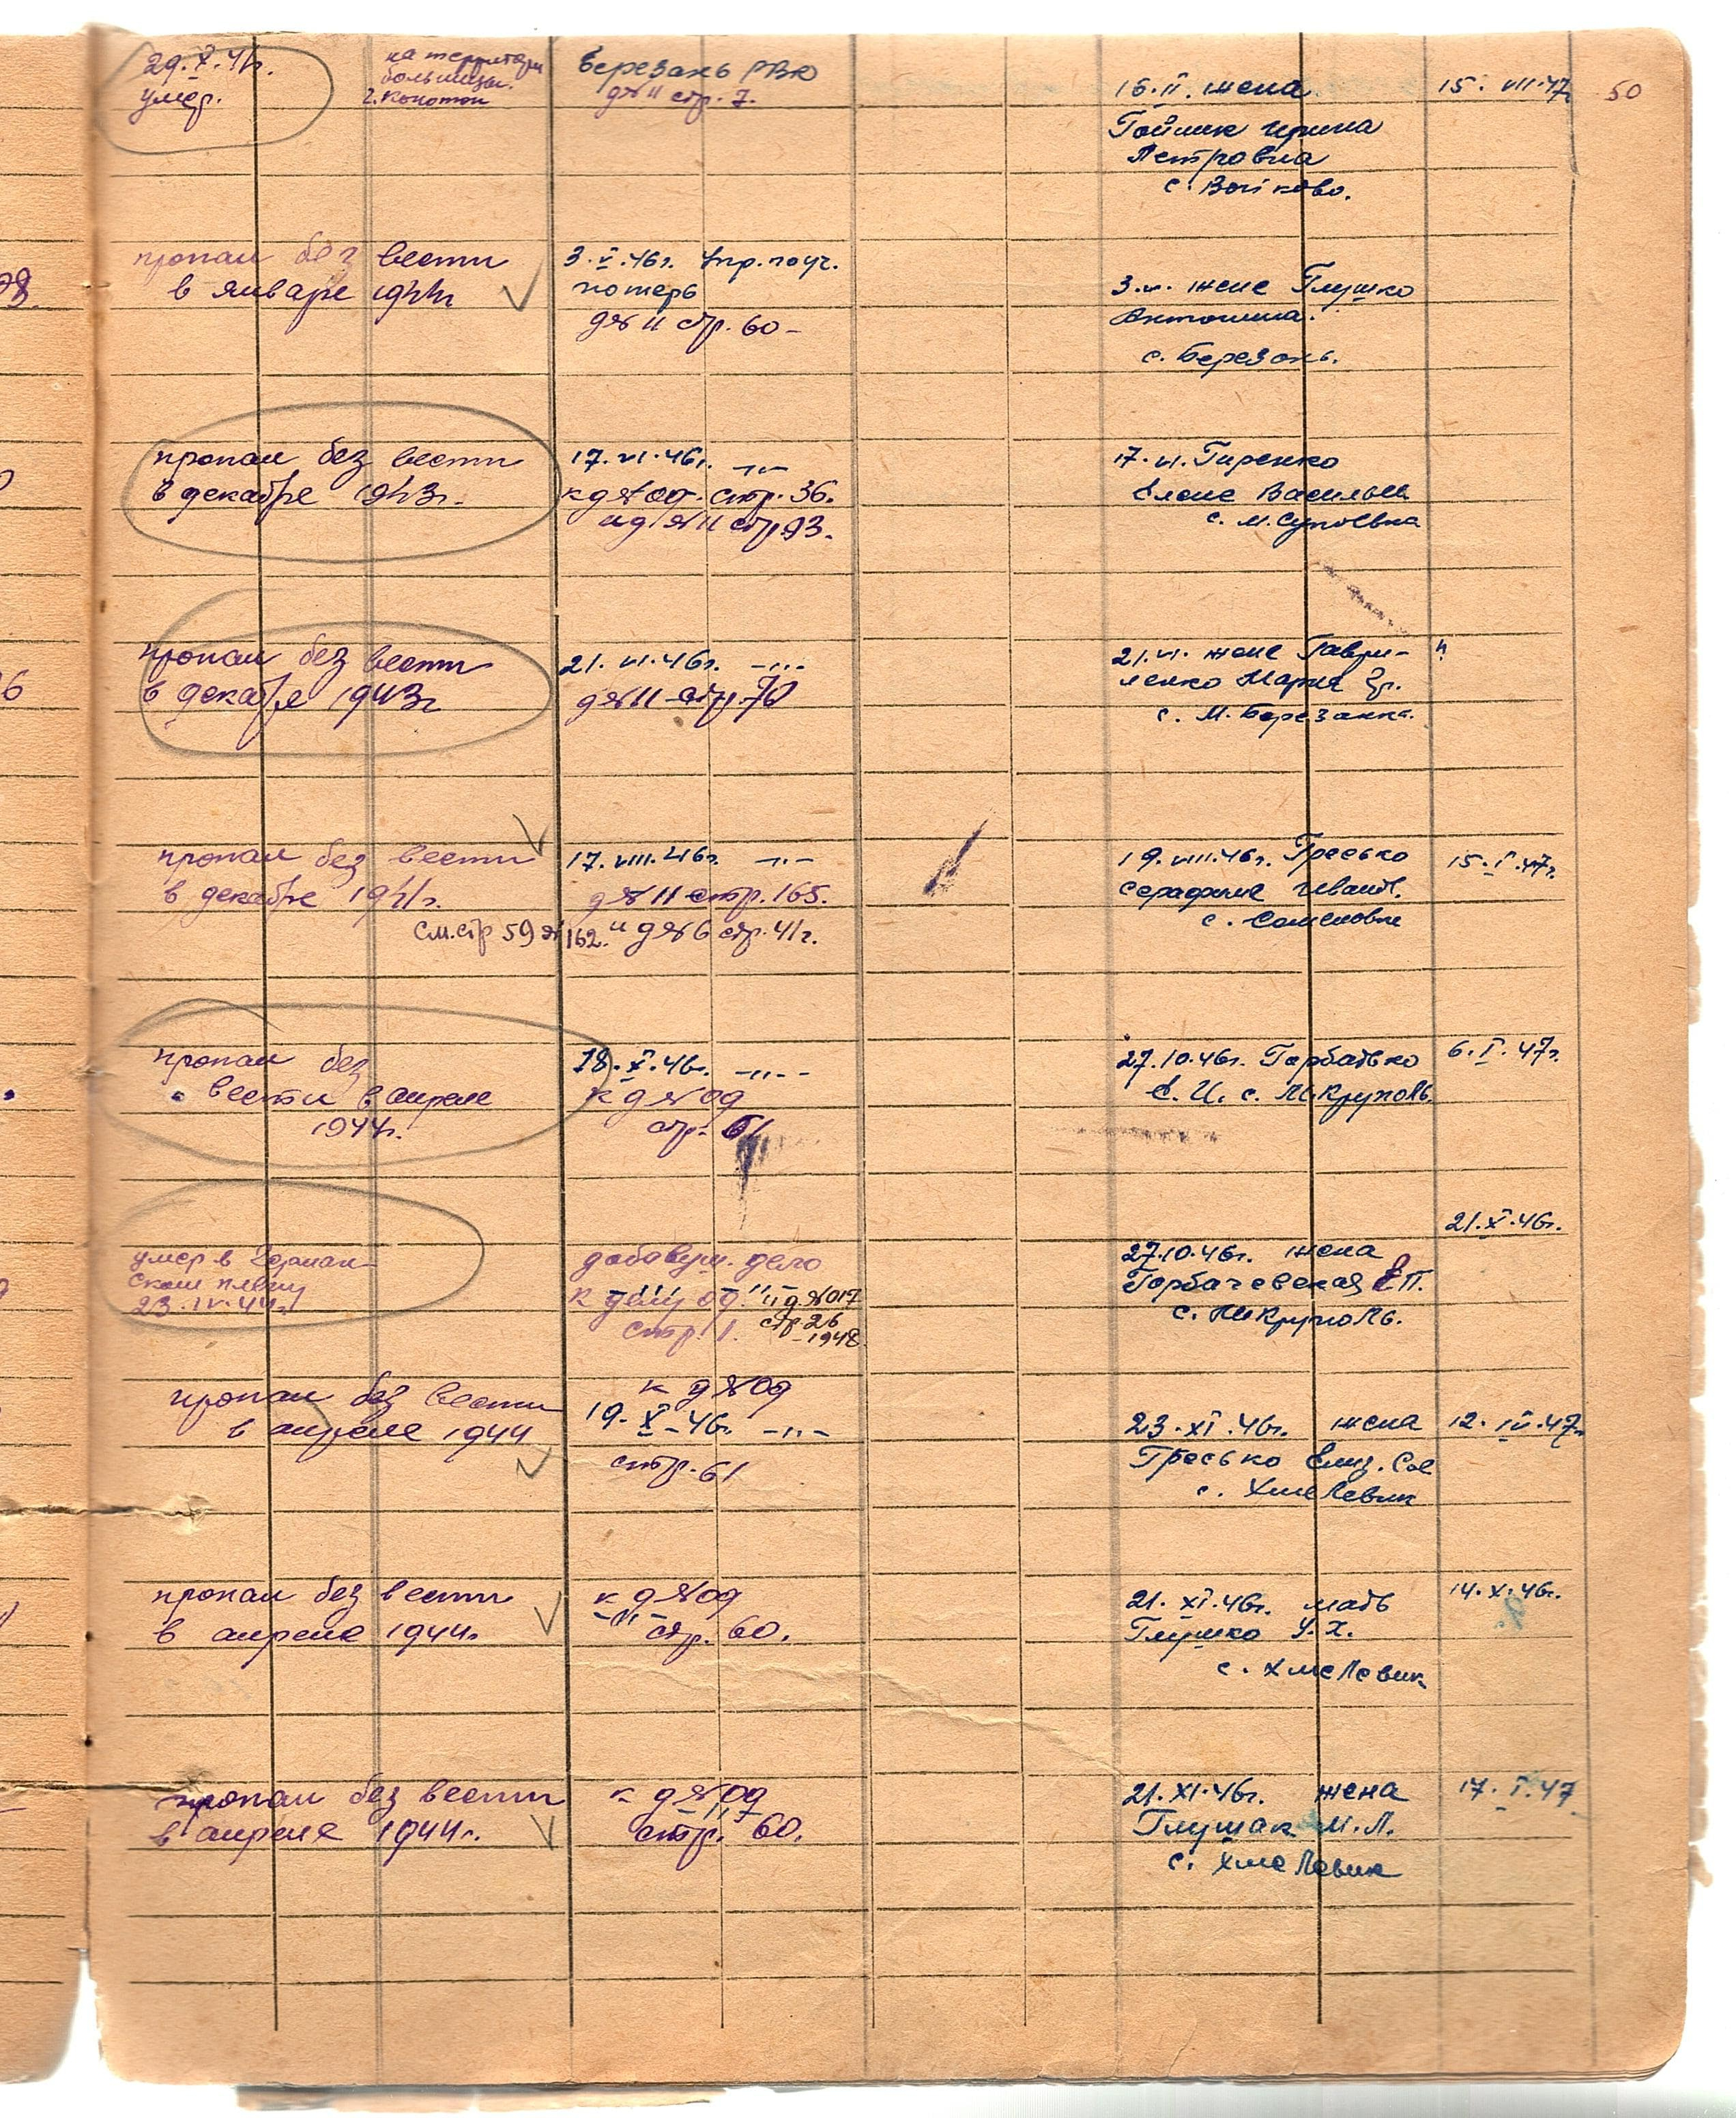 29.X.41г.
умер.
на территории
больницы
г. Конотоп
Березань РВК
д№11 стр. 7.
16.II. жена
Гойник Ирина
Петровна
с. Войково.
15. VII.47г
50
пропал без вести
в январе 1944г
3.V.46г. Упр. по уч.
потерь
д№11 стр. 60-
3.VI. жене Глушко
Антонина.
с. Березань.
98.
пропал без вести
в декабре 1943г.
17.VI.46г. -"-
к д№09. стр. 36.
и д№11 стр. 93.
17.VI. Гиренко
Елене Васильев.
с. М. Супоевка
пропал без вести
в декабре 1943г
21.VI.46г. -"-
д№11 стр. 70
21.VI. жене Гаври-
ленко Мария Гр.
с. М. Березанка.
6
пропал без вести
в декабре 1941г.
17.VIII.46г. -"-
д№11 стр. 165.
см. стр 59 №162. и д№6 стр. 41г.
19.VIII.46г. Гресько
Серафиме Иванов.
с. Семеновке
15.I.47г.
пропал без
вести в апреле
1944г.
18.X.46г. -"-
к д№09
стр. 61
27.10.46г. Горбатько
Е. И. с. М.Круполь.
6.I.47г.
умер в Герман-
ском плену
23.IV.44г.
добавуш. дело
к делу 09. и д.№017
стр. 1. стр 26
-1948
27.10.46г. жена
Горбачевская Е.П.
с. М.Круполь.
21.X.46г.
пропал без вести
в апреле 1944
к д№09
19.X-46г. -"-
стр. 61
23.XI.46г. жена
Гресько Елиз. Сав
с. Хмелевик
12.IV.47г
пропал без вести
в апреле 1944г.
к д№09
-"- стр. 60.
21.XI.46г. мать
Глушко У.Х.
с. Хмелевик
14.X.46г.
пропал без вести
в апреле 1944г.
к д№09
-"-
стр. 60.
21.XI.46г. жена
Глушак М.Л.
с. Хмелевик
17.I.47